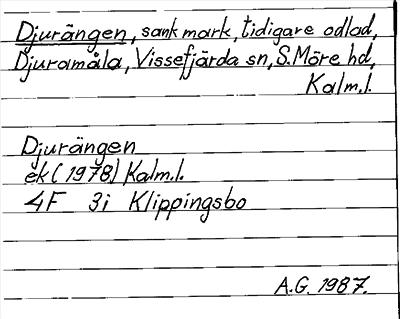 Djurängen, sank mark, tidigare odlad,
Djuramåla, Vissefjärda sn, S. Möre hd,
Kalm.l.
Djurängen
ek (1978) Kalm.l.
4F 3i Klippingsbo
A.G. 1987.